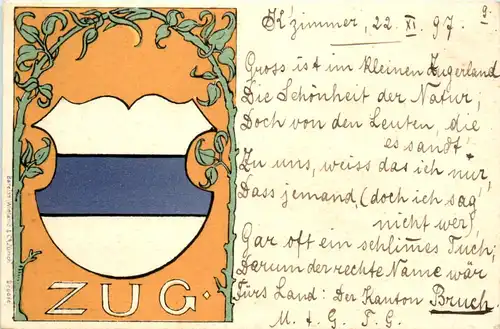 K'zimmer, 22. XI. 97.
Gross ist im kleinen Zugerland
Die Schönheit der Natur,
Doch von den Leuten, die
es sandt
Zu uns, weiss das ich nur,
Dass jemand, (doch ich sag'
nicht wer),
Gar oft ein schlimes Tuch;
Darum der rechte Name wär
Fürs Land: Der Kanton Bruch
M. + G. F. G.
ZUG.